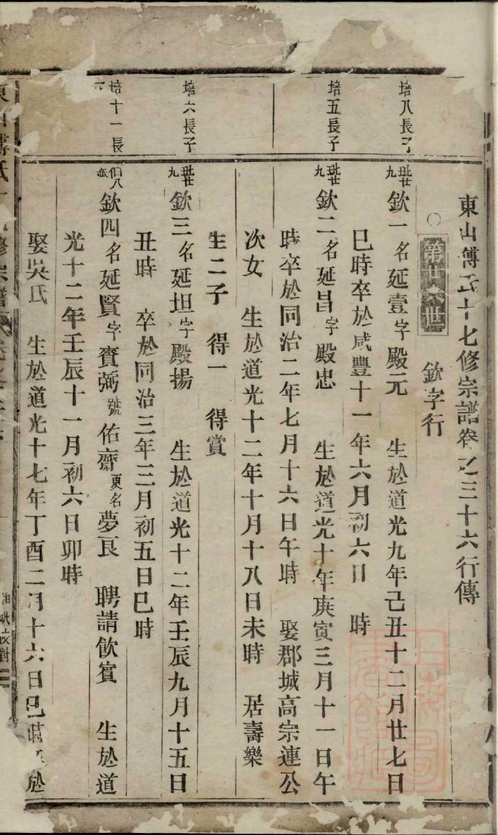 東山傅氏十七修宗譜卷之三十六行傳
第廿六世 欽字行
培八長子
欽一名延壹字殿元 生於道光九年己丑十二月廿七日
巳時卒於咸豐十一年六月初六日 時
培五長子
欽二名延昌字殿忠 生於道光十年庚寅三月十一日午
時卒於同治二年七月十六日午時 娶郡城高宗連公
次女 生於道光十二年十月十八日未時 居壽樂
生二子 得一 得賞
培六長子
欽三名延坦字殿揚 生於道光十二年壬辰九月十五日
丑時 卒於同治三年三月初五日巳時
培十一長
欽四名延賢字賚弼號佑齋更名夢良 聘請飲賓 生於道
光十二年壬辰十一月初六日卯時
娶吳氏 生於道光十七年丁酉二月十六日巳時 於